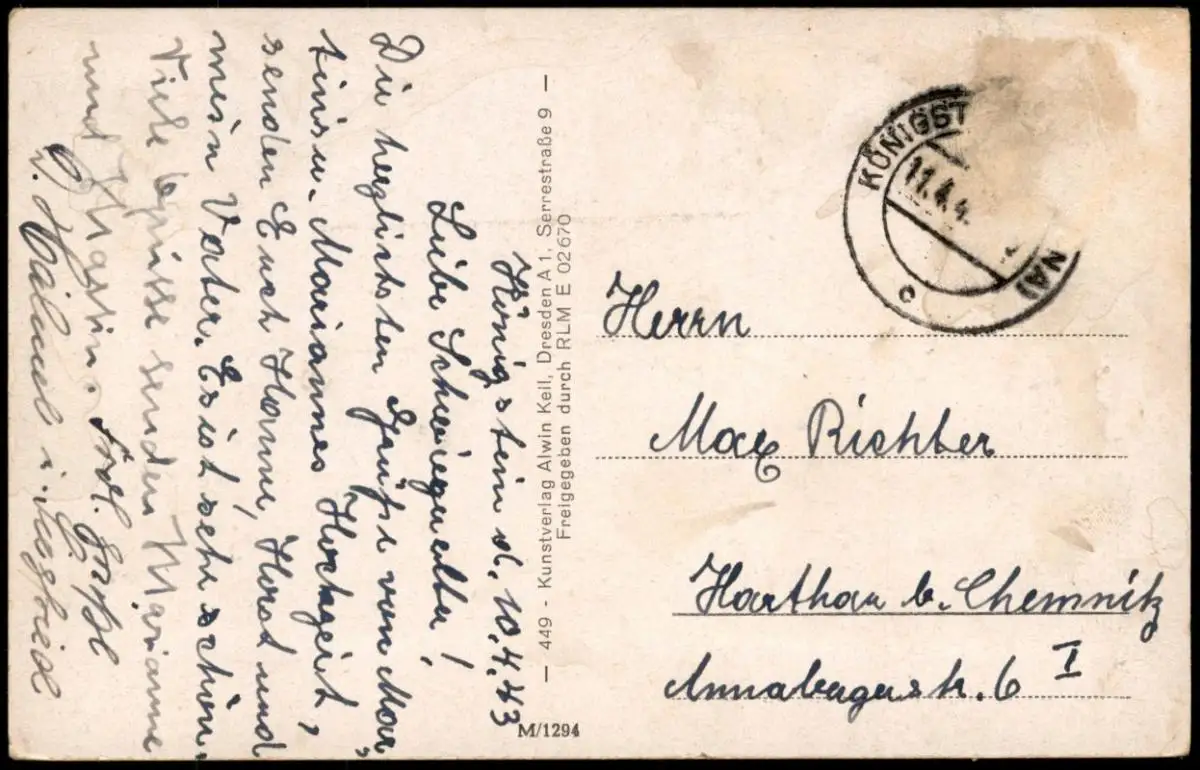 Königstein d. 10.4.43
Liebe Schwiegereltern!
Die herzlichsten Grüße von Mar„
tins u. Mariannes Hochzeit,
senden Euch Hanne, Horst und
mein Vater. Es ist sehr schön.
Viele Grüsse senden Marianne
und Martin. Frdl. Grüße
v. Helmut i. Siegfried
— 449 - Kunstverlag Alwin Keil, Dresden A 1, Serrestraße 9 —
Freigegeben durch RLM E 02670
M/1294
KÖNIGST
11.4.4
NA)
c
Herrn
Max Richter
Harthau b. Chemnitz
Annabergerstr. 6 I